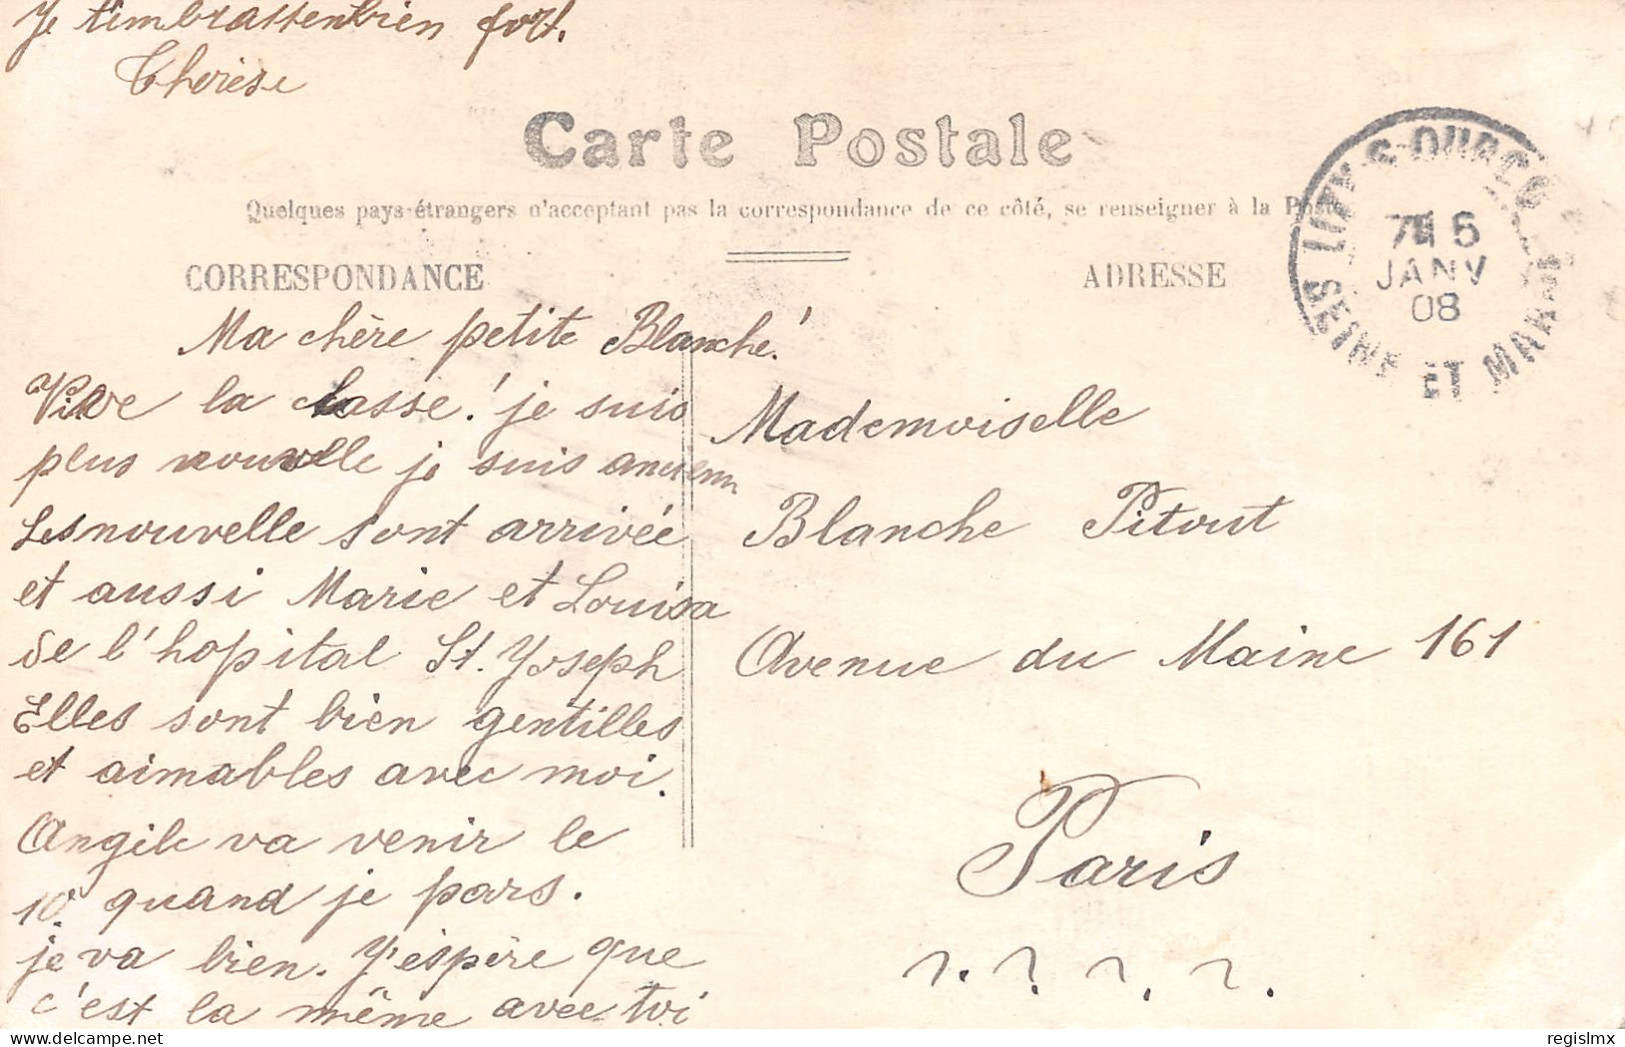 Je t'embrasse bien fort.
Therèse
Carte Postale
Quelques pays-étrangers n'acceptant pas la correspondance de ce côté, se renseigner à la Poste
CORRESPONDANCE
ADRESSE
LIZY-S-OURCQ
7H 5
JANV
08
SEINE ET MARNE
Ma chère petite Blanche!
Vive la classe! je suis
plus nouvelle je suis ancienn
Les nouvelle sont arrivée
et aussi Marie et Louisa
de l'hopital St. Yoseph
Elles sont bien gentilles
et aimables avec moi.
Angile va venir le
10 quand je pars.
je va bien. Y'espère que
c'est la même avec toi
Mademoiselle
Blanche Pitout
Avenue du Maine 161
Paris
?. ? ? ?
regislmx
delcampe.net